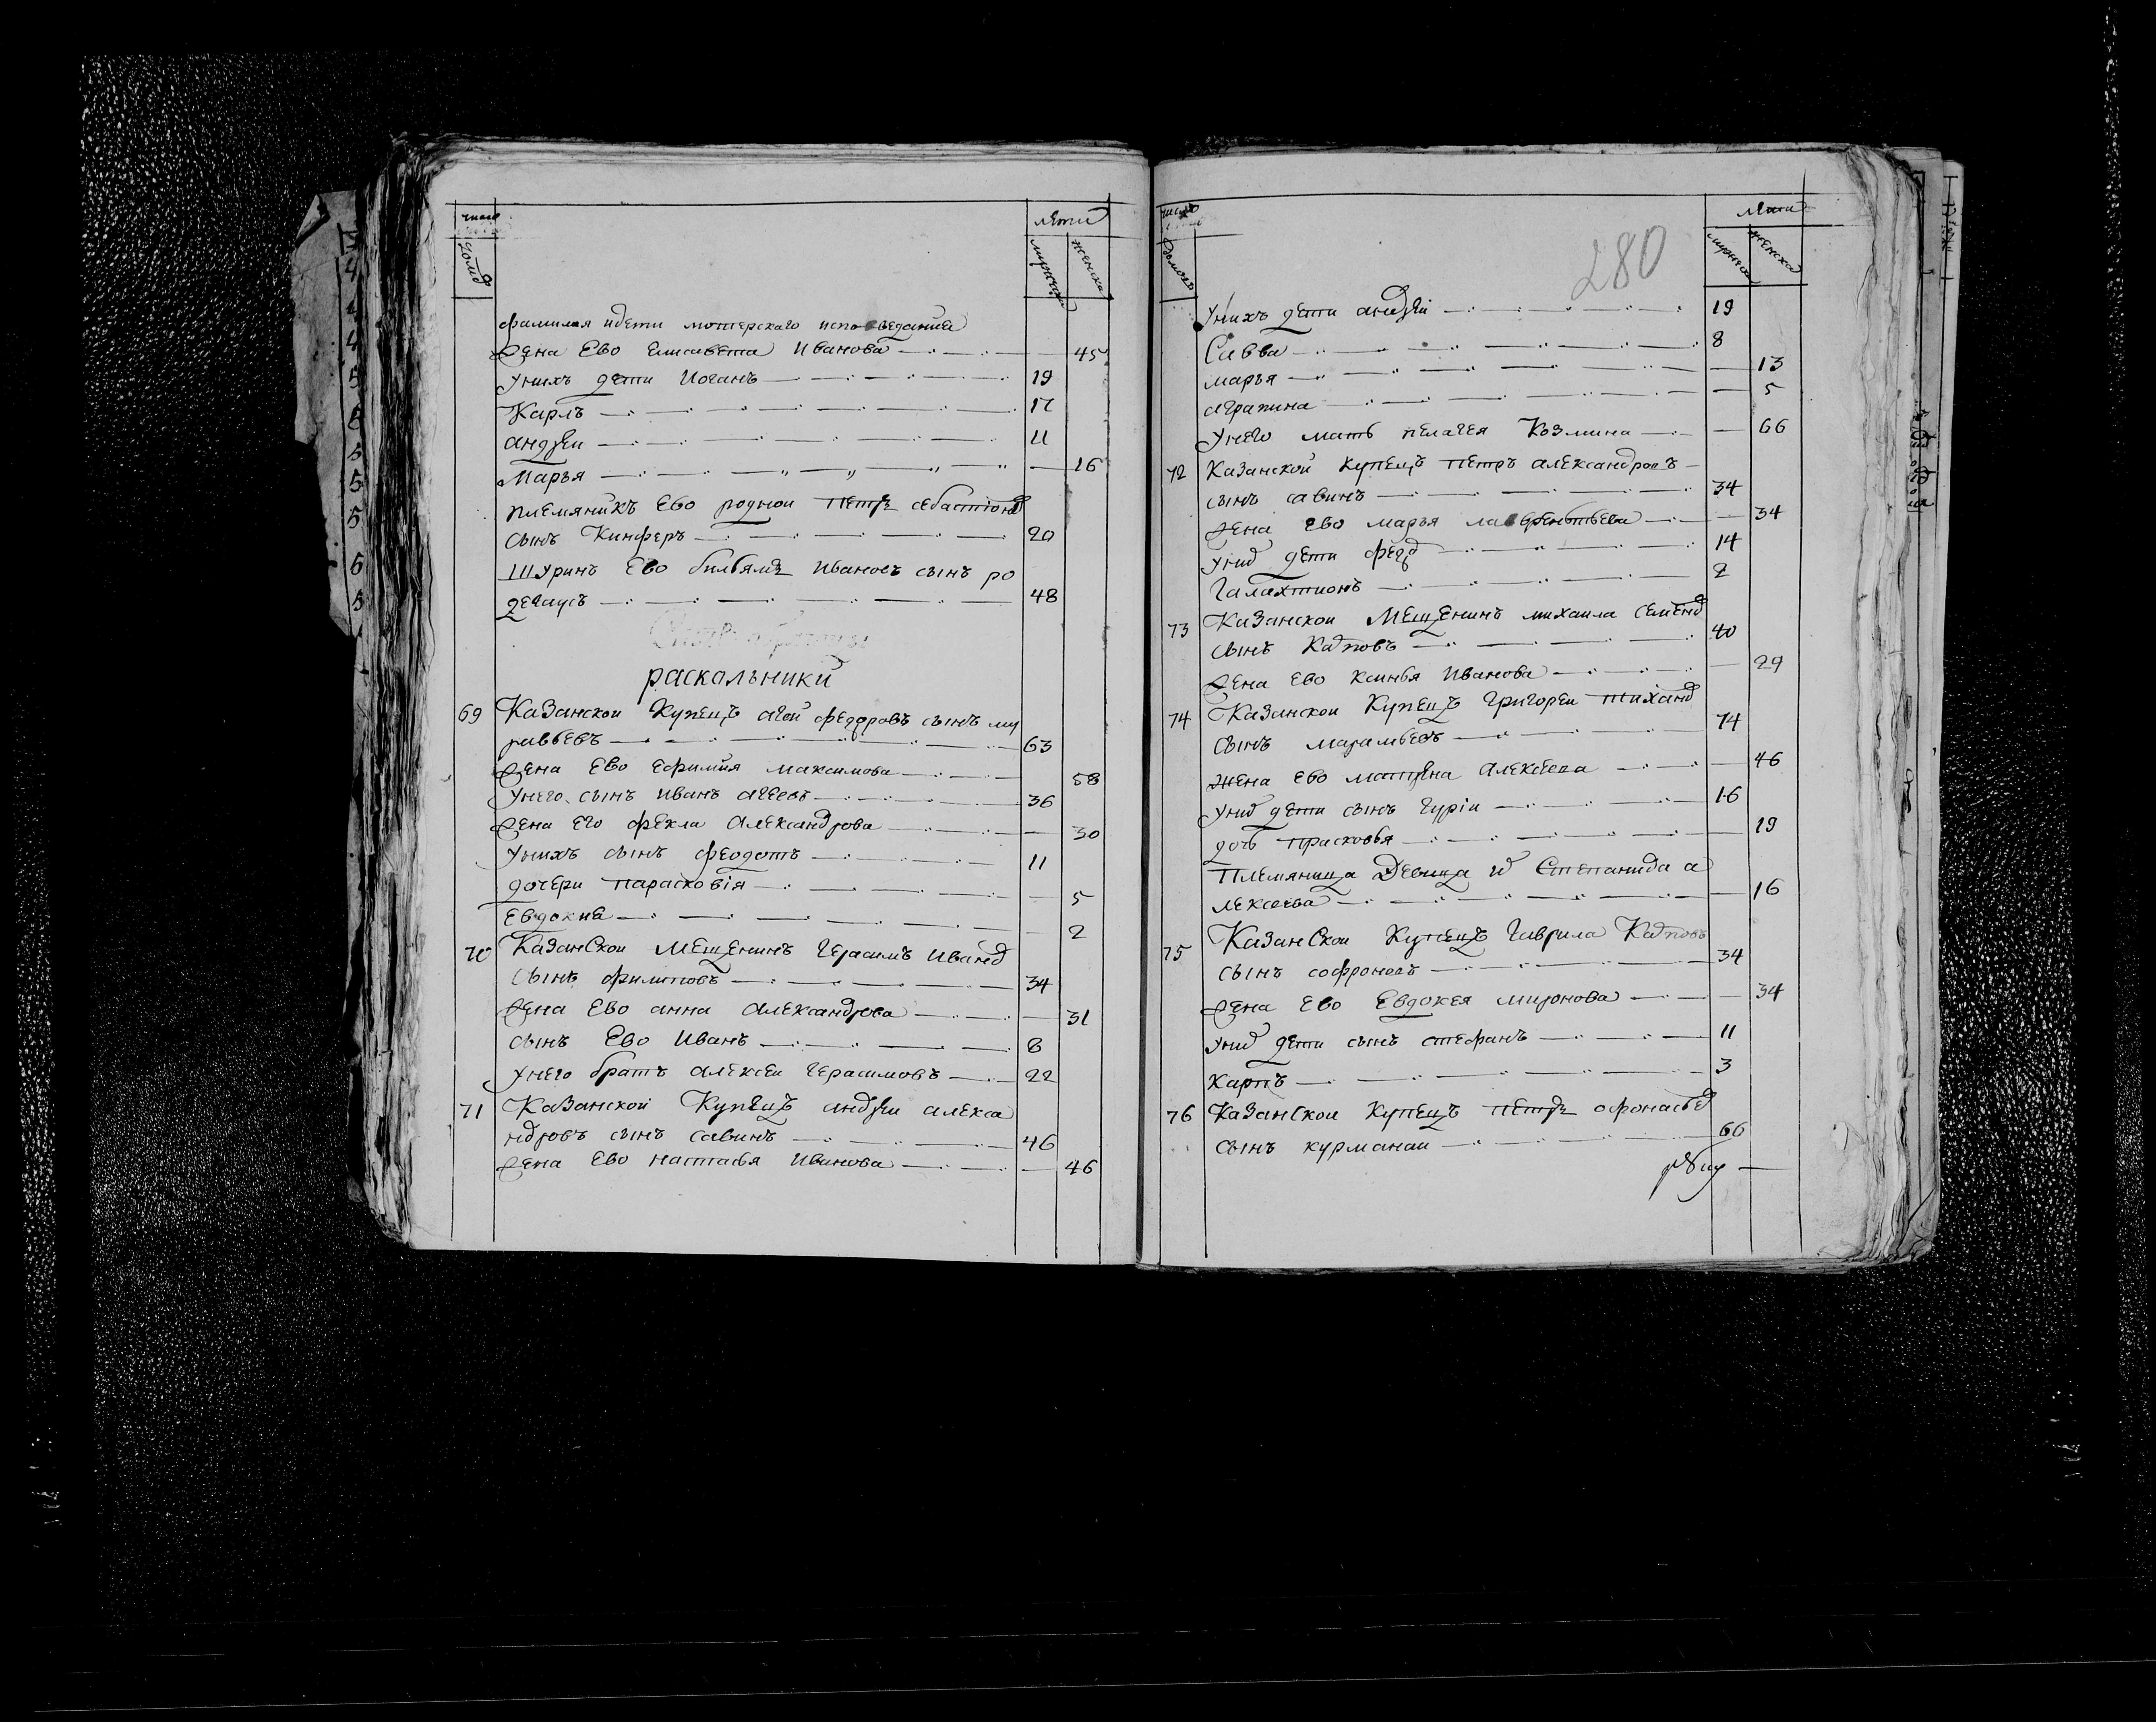 число
домовъ
лети
мужеска
женска
фамилия идети лютерскаго исповеданиа
Жена Ево Елисавета Иванова 45
Унихъ дети Иоганъ 19
Карлъ 17
андрей 11
Марья 16
племяникъ Ево родной Петръ себастiоновъ
сынъ Кинферъ 20
Шуринъ Ево Вилвялмъ Ивановъ сынъ ро
дегаусъ 48
раскольники
69 Казанской Купецъ агей федоровъ сынъ му
равьевъ 63
Жена Ево Ефимия максимова 58
Унего сынъ Иванъ агеевъ 36
Жена Его фекла Александрова 30
Унихъ сынъ феодотъ 11
дочери парасковiя 5
Евдокиа 2
70 Казанской Мещенинъ Герасимъ Ивановъ
Сынъ филиповъ 34
Жена Ево анна Александрова 31
сынъ Ево Иванъ 8
Унего братъ алексей Герасимовъ 22
71 Казанской Купецъ андрей алекса
ндровъ сынъ савинъ 46
Жена Ево настасья Иванова 46
280
число
домовъ
лета
мужеска
женска
Унихъ дети андрей 19
Савва 8
марья 13
аграпина 5
Унего мать пелагея Козмина 66
72 Казанской купецъ петръ александровъ
сынъ савинъ 34
Жена ево марья лаврентьева 34
Унихъ дети федоръ 14
Галахтионъ 2
73 Казанской Мещенинъ михаила Семеновъ
сынъ Карповъ 40
Жена Ево Ксинья Иванова 29
74 Казанской Купецъ Григорей тихановъ
сынъ 74
жена Ево матрена Алексеева 46
Унихъ дети сынъ Гурiй 16
дочь прасковья 19
Племяница Девица Степанида а
лексеева 16
75 Казанской Купецъ Гаврила Карповъ
сынъ софроновъ 34
Жена Ево Евдокея миронова 34
Унихъ дети сынъ стефанъ 11
Карпъ 3
76 Казанской Купецъ петръ офонасьевъ
сынъ курманаи 66